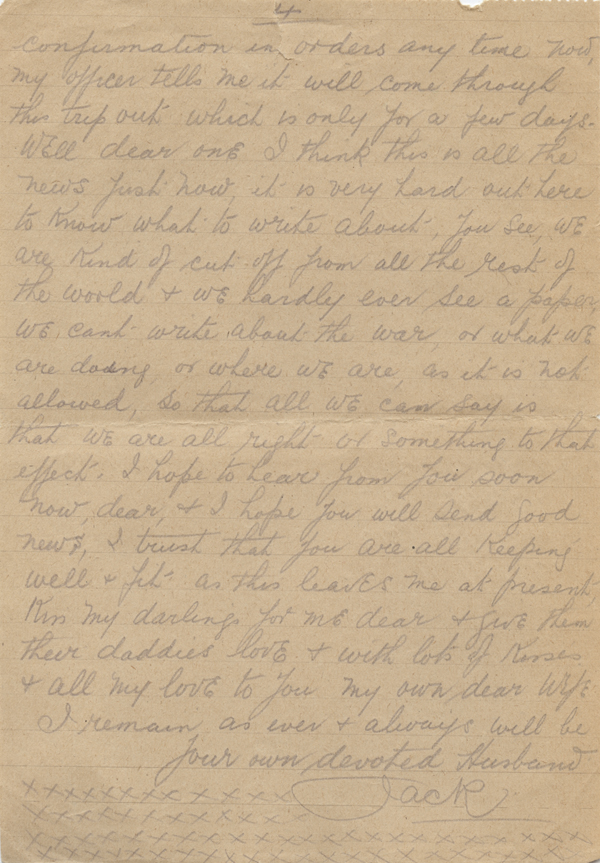 4
confirmation in orders any time now,
my officer tells me it will come through
this trip out which is only for a few days.
Well dear one I think this is all the
news just now, it is very hard out here
to know what to write about, you see, we
are kind of cut off from all the rest of
the world & we hardly ever see a paper,
we cant write about the war, or what we
are doing, or where we are, as it is not
allowed, so that all we can say is
that we are all right or something to that
effect. I hope to hear from you soon
now, dear, & I hope you will send good
news, I trust that you are all keeping
well & fit as this leaves me at present,
Kiss my darlings for me dear & give them
their daddies love & with lots of kisses
& all my love to you my own dear Wife
I remain, as ever & always will be
your own devoted Husband
Jack
x x x x x x x x x x x x x x
x x x x x x x x x x x x x
x x x x x x x x x x x x x x x x x x x x x x x x
x x x x x x x x x x x x x x x x x x x x x x x x